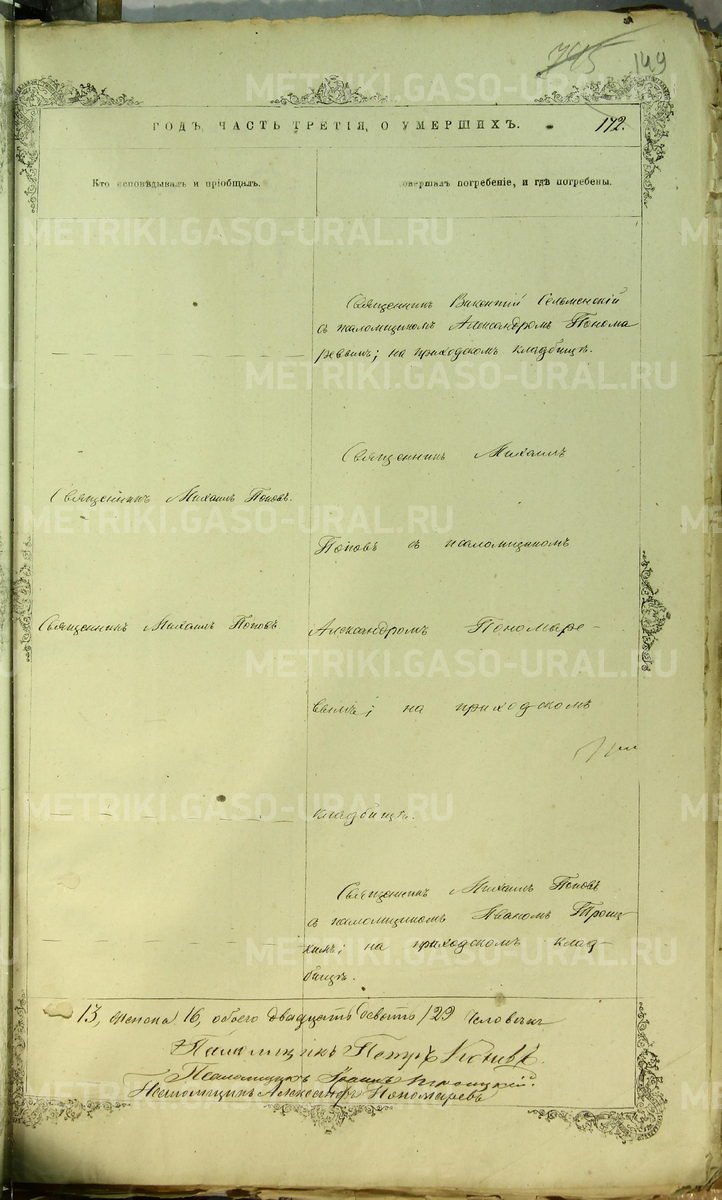 745 149
ГОДЪ, ЧАСТЬ ТРЕТІЯ, О УМЕРШИХЪ.
172.
Кто исповѣдывалъ и пріобщалъ.
совершалъ погребеніе, и гдѣ погребены.
Священникъ Викентій Сельменскій
съ псаломщикомъ Александромъ Понома
ревымъ; на приходскомъ кладбищѣ.
Священникъ Михаилъ
Священникъ Михаилъ Поповъ.
Поповъ съ псаломщикомъ
Священникъ Михаилъ Поповъ
Александромъ Пономаре-
вымъ; на приходскомъ
кладбищѣ.
Священникъ Михаилъ Поповъ
съ псаломщикомъ Иваномъ Троиц
кимъ; на приходскомъ клад-
бищѣ.
13, женска 16, обоего двадцать девять /29 человѣкъ
Псаломщикъ Петръ
Псаломщикъ Іоаннъ Троицкій.
Псаломщикъ Александръ Пономаревъ
METRIKI.GASO-URAL.RU